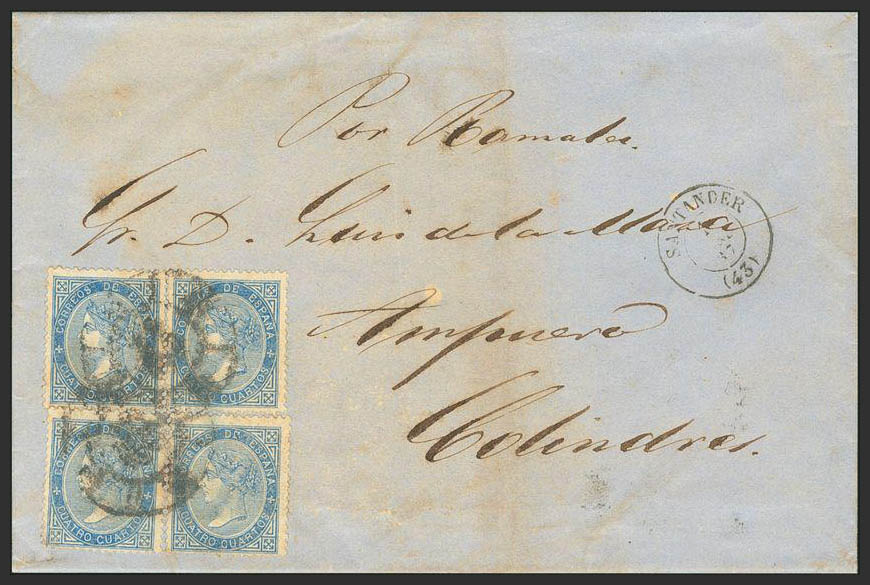 Por Ramales.
Sr. D. Luis de la Maza
SANTANDER
(43)
CORREOS DE ESPAÑA
CUATRO CUARTOS
CORREOS DE ESPAÑA
CUATRO CUARTOS
Ampuero
Colindres.
CORREOS DE ESPAÑA
CUATRO CUARTOS
CORREOS DE ESPAÑA
CUATRO CUARTOS